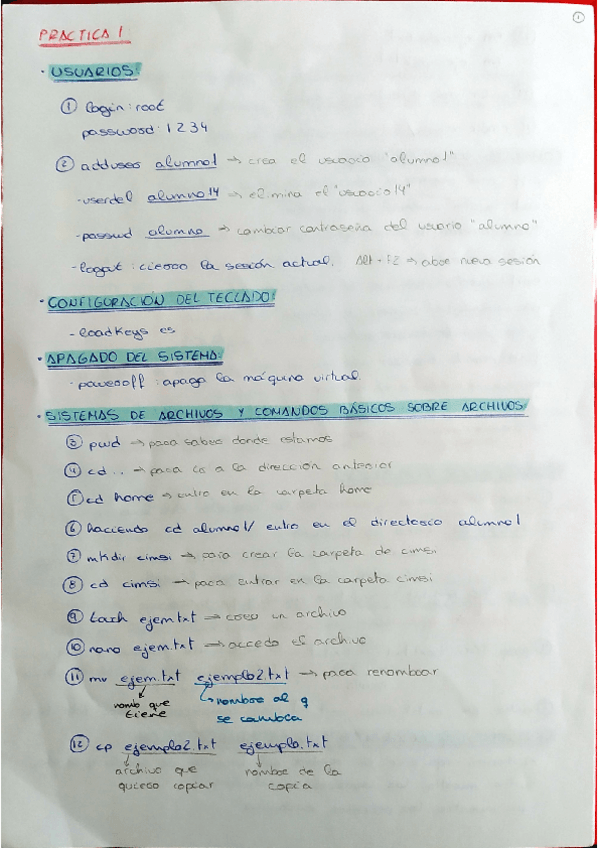 1
PRACTICA 1
· USUARIOS:
① login: root
password: 1234
② adduser alumno1 → crea el usuario "alumno1"
· userdel alumno14 → elimina el "usuario14"
· passwd alumno → cambiar contraseña del usuario "alumno"
- logout : cierro la sesión actual. Alt + F2 → abre nueva sesión
· CONFIGURACION DEL TECLADO:
- loadkeys es
· APAGADO DEL SISTEMA:
· poweroff : apaga la máquina virtual.
· SISTEMAS DE ARCHIVOS Y COMANDOS BÁSICOS SOBRE ARCHIVOS:
③ pwd → para saber donde estamos
④ cd .. → para ir a la dirección anterior
⑤ cd home → entro en la carpeta home
⑥ haciendo cd alumno1/ entro en el directorio alumno1
⑦ mkdir cimsi → para crear la carpeta de cimsi
⑧ cd cimsi → para entrar en la carpeta cimsi
⑨ touch ejem.txt → creo un archivo
⑩ nano ejem.txt → accedo el archivo
⑪ mv ejem.txt ejemplo2.txt → para renombrar
nomb que tiene
nombre al q se cambia
⑫ cp ejemplo2.txt ejemplo.txt
archivo que nombre de la
quiero copiar copia